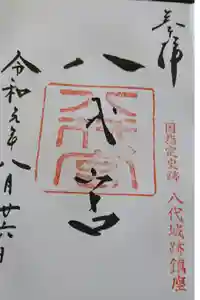 奉拝
国指定史跡
八代城跡鎮座
八代宮
令和元年八月廿六日